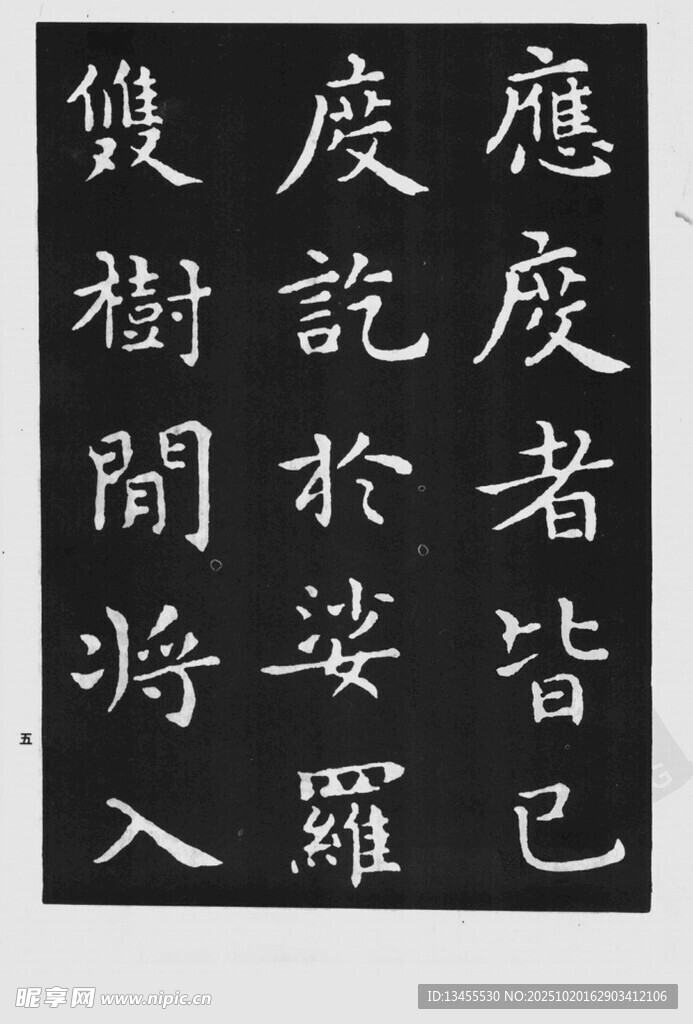 應度者皆已
度訖於娑羅
雙樹間將入
五
昵享网 www.nipic.cn
ID:13455530 NO:20251020162903412106